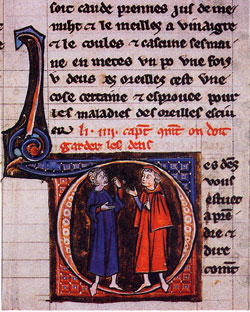 soit caude prennes jus de me
& le meilles a vinaigre
& le coules & cascune sesmai
ne en metes un po une fois
u deus es oreilles cest une
cose certaine & esprouee pour
les maladies des oreilles
li .iiii. capt. on doit
garder les dens
es dens
vous
estuet
dre &
dire
comt